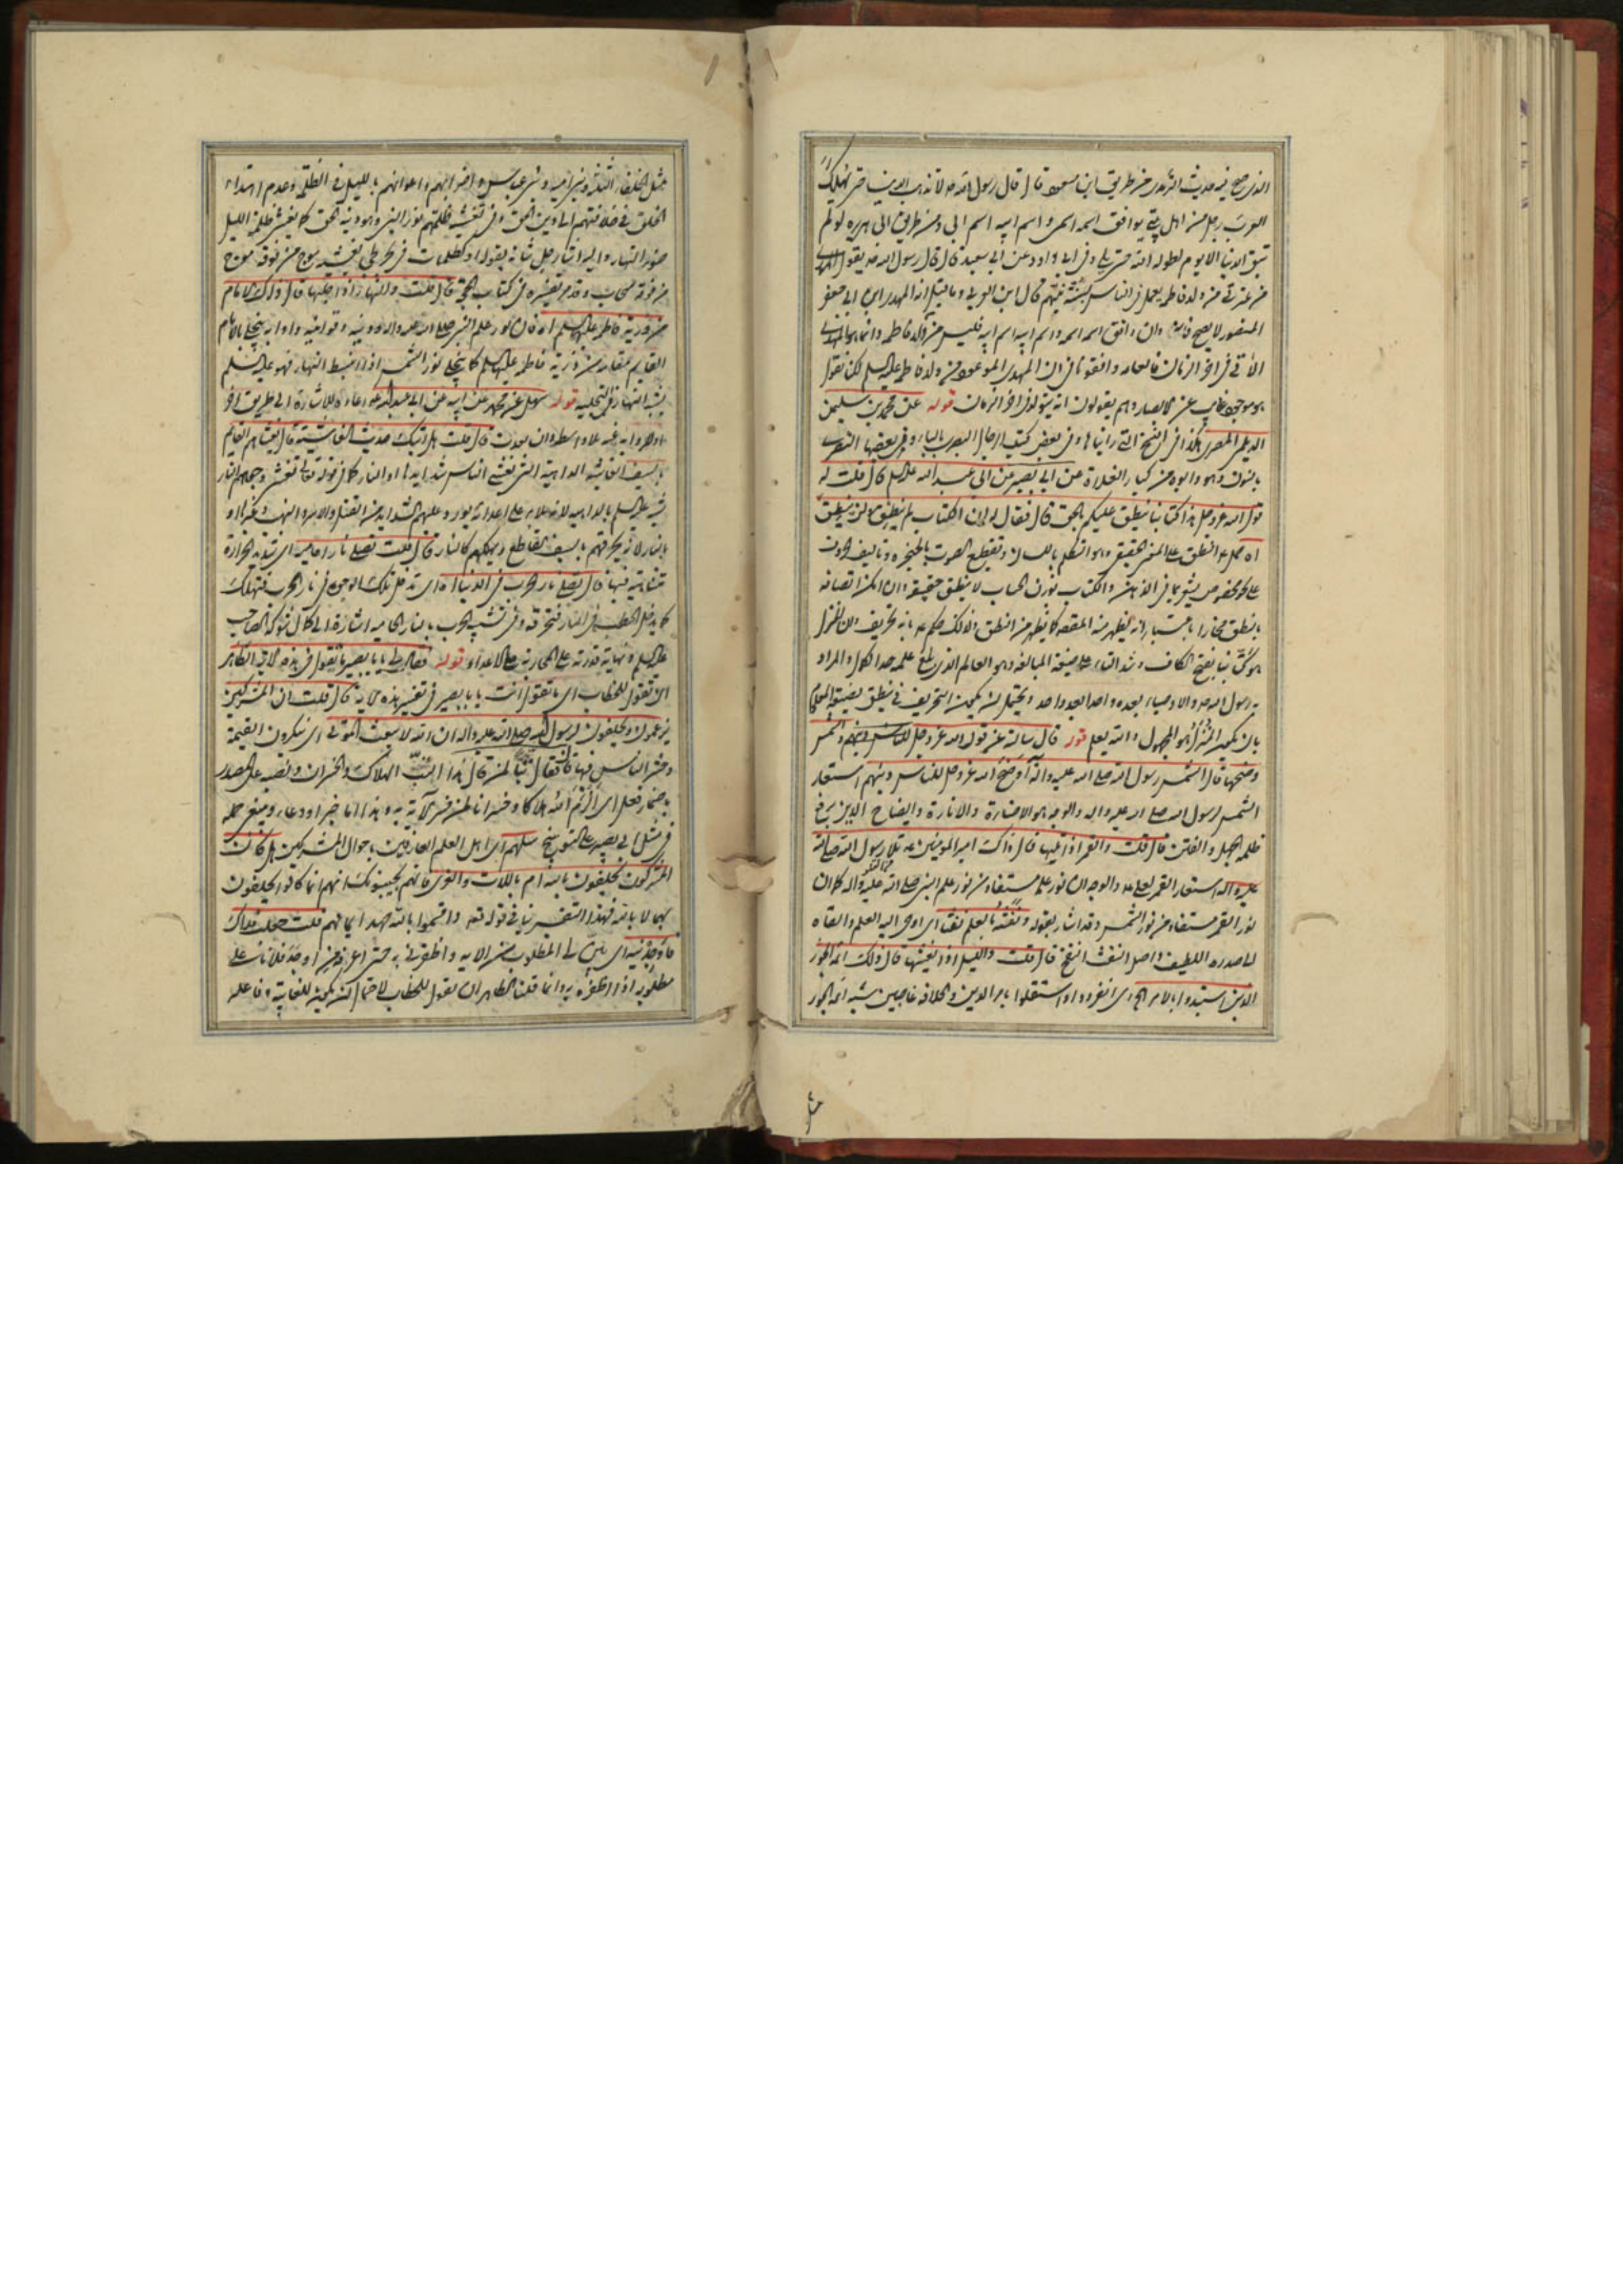 الذى صح فيه حديث الترمذى من طريق ابن مسعود قال قال رسول الله ص لا تذهب الدنيا حتى يملك
العرب رجل من اهل بيتى يواطئ اسمه اسمى واسم ابيه اسم ابى ومن طريق ابى هريرة لو لم
يبق الدنيا الا يوم لطوله الله حتى يلى وفى ابى داود عن ابى سعيد قال قال رسول الله ص يقول المهدى
من عترتى من ولد فاطمة يعمل فى الناس بسنة نبيهم قال ابن العربى وما قيل انه المهدى ابن ابى جعفر
المنصور لا يصح فانه وان وافق اسمه اسمه واسم ابيه اسم ابيه فليس من ولد فاطمة وانما هو المهدى
الآتى فى اخر الزمان فالعامة وافقونا فى ان المهدى الموعود من ولد فاطمة عليها السلم لكن نقول
هو موجود غايب عن الابصار وهم يقولون انه يتولد فى اخر الزمان قوله عن محمد بن سليمن
الديلمى المصرى هكذا فى النسخ التى رايناها وفى بعض كتب الرجال البصرى بالباء وفى بعضها النصرى
بالنون وهو وابوه من كبار الغلاة عن ابى بصير عن ابى عبد الله عليه السلم قال قلت له
قول الله عز وجل هذا كتابنا ينطق عليكم بالحق قال فقال له ان الكتاب لم ينطق ولن ينطق
اه حمل ع النطق على المعنى الحقيقى وهو التكلم باللسان وتقطيع الصوت بالحنجرة وتاليف الحروف
على نحو مخصوص يشعر بما فى الذهن والكتاب بوزن الحساب لا ينطق حقيقة وان امكن اتصافه
بالنطق مجازا باعتبار انه يظهر منه المقصد كما يظهر من النطق ولذلك حكم ع بانه تحريف وان المنزل
هو كتابنا بفتح الكاف وشد التاء على صيغة المبالغة وهو العالم الذى بلغ علمه حد الكمال والمراد
به رسول الله ص والاوصياء بعده واحدا بعد واحد ويحتمل ان يكون التحريف فى ينطق بصيغة المعلوم
بان يكون المنزل هو المجهول والله يعلم قوله قال سالته عن قول الله عز وجل والشمس
وضحيها قال الشمس رسول الله صلى الله عليه وآله اوضح الله عز وجل للناس دينهم استعار
الشمس لرسول الله صلى الله عليه واله والوجه هو الاضاءة والانارة وايضاح الدين برفع
ظلمة الجهل والفتن قال قلت والقمر اذا تليها قال ذاك امير المومنين ع تلا رسول الله صلى الله
عليه واله استعار القمر لعلى ع والوجه ان نور علمه مستفاد من نور علم النبى صلى الله عليه واله كما ان
نور القمر مستفاد من نور الشمس وقد اشار بقوله ونفثه بالعلم نفثا اى اوحى اليه العلم والقاه
فى صدره اللطيف واصل النفث النفخ قال قلت والليل اذا يغشيها قال ذلك ائمة الجور
الذين استبدوا بالامر اى انفردوا واستقلوا بامر الدين والخلافة غاصبين شبه ائمة الجور
مثل
مثل الخلفاء الثلثة وبنى امية وبنى عباس واضرابهم واعوانهم بالليل فى الظلمة وعدم اهتداء
الخلق فى خلافتهم الى دين الحق وفى تغشية ظلمتهم نور النبى وهو دينه الحق كما يغشى ظلمة الليل
ضوء النهار واليه اشار جل شانه بقوله او كظلمات فى بحر لجى يغشيه موج من فوقه موج
من فوقه سحاب وقد مر تفسيره فى كتاب الحجة قال قلت والنهار اذا جليها قال ذلك الامام
من ذرية فاطمة عليها السلم اه فان نور علم النبى صلى الله عليه واله ودينه وقوانينه وادابه ينجلى بالامام
القايم مقامه من ذرية فاطمة عليها السلم كما ينجلى نور الشمس اذا انبسط النهار فهو عليه السلم
يشبه النهار فى التجلية قوله سهل عن محمد عن ابيه عن ابى عبد الله ع
بالسيف الغاشية الداهية التى تغشى الناس شدايدها او النار كما فى قوله تعالى تغشى وجوههم النار
شبه عليه السلم بالداهية لانه بلاء على اعدائه يورد عليهم الشدايد من القتل والاسر والنهب وغيرها او
بالنار لانه يحرقهم بالسيف القاطع ويهلكهم كالنار قال قلت تصلى نارا حامية اى شديد الحرارة
متناهية فيها قال تصلى نار الحرب فى الدنيا اه اى تدخل تلك الوجوه فى نار الحرب فتهلك
كما يدخل الحطب فى النار فتحرقه وفى تشبيه الحرب بالنار الحامية اشارة الى كمال شوكة الصاحب
عليه السلم ونهاية قدرته على المحاربة على الاعداء قوله فقال لى يا با بصير ما تقول فى هذه الاية الظاهر
ان تقول للخطاب اى ما تقول انت يا با بصير فى تفسير هذه الاية قال قلت ان المشركين
يزعمون ويحلفون لرسول الله صلى الله عليه واله ان الله لا يبعث الموتى اى ينكرون القيمة
وحشر الناس فيها قال فقال تبا لمن قال هذا التب الهلاك والخسران ونصبه على المصدر
باضمار فعل اى الزم الله هلاكا وخسرانا لمن فسر الآية به وهذا اما خبر او دعاء
المشركون يحلفون بالله ام باللات والعزى فانهم يجيبونك انهم انما كانوا يحلفون
بهما لا بالله فهذا التفسير ينافى قوله تع واقسموا بالله جهد ايمانهم قلت جعلت فداك
فاوجدنيه اى بين لى المطلوب من الاية واظفرنى به حتى اعرفه من اوجد فلانا على
مطلوبه اذا اظفره به وانما قلنا الظاهر ان تقول للخطاب لاحتمال ان يكون للغايبة وفاعله